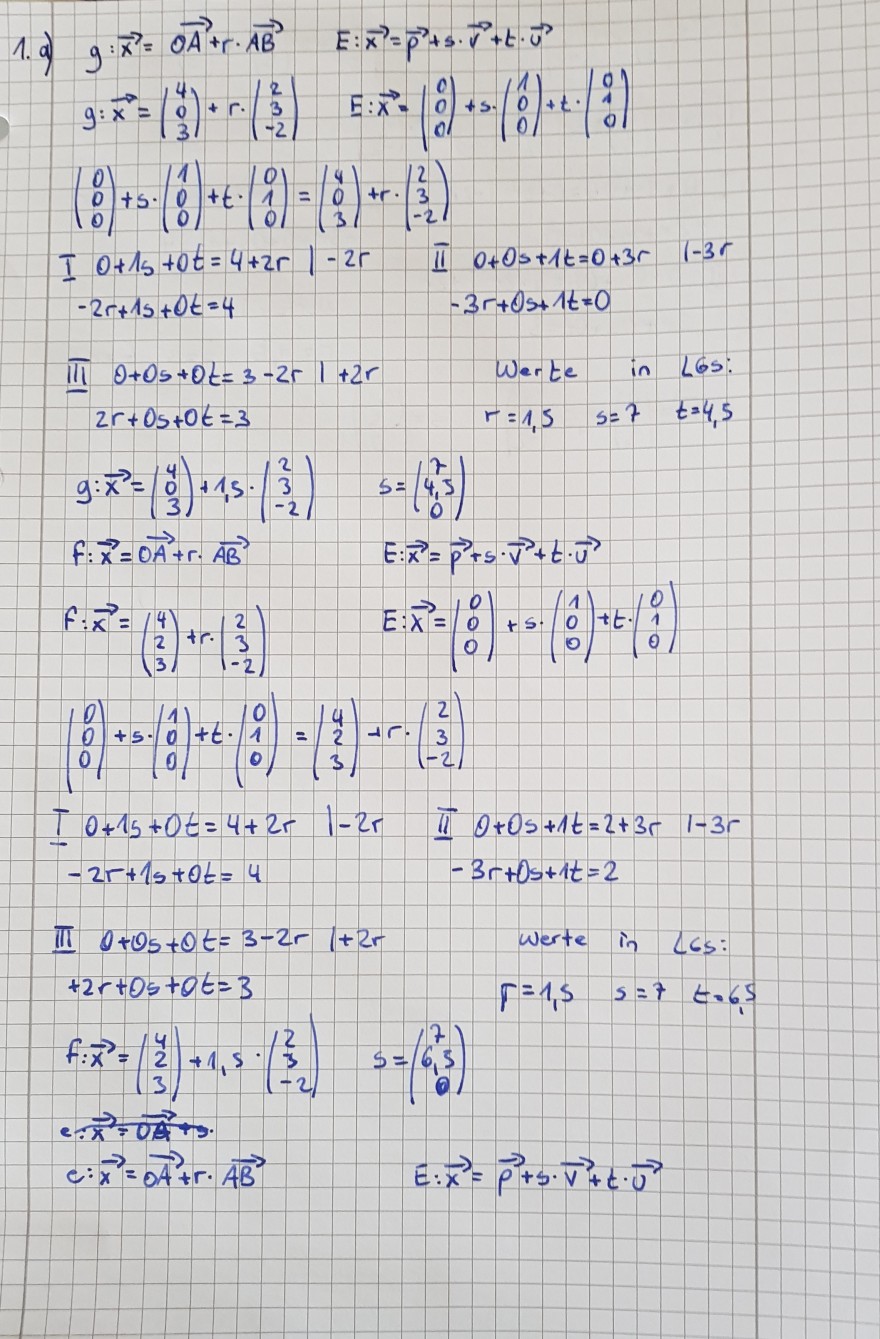 1. a) g: x⃗ = OA⃗ + r · AB⃗ E: x⃗ = p⃗ + s · v⃗ + t · u⃗
g: x⃗ = (4 0 3) + r · (2 3 -2) E: x⃗ = (0 0 0) + s · (1 0 0) + t · (0 1 0)
(0 0 0) + s · (1 0 0) + t · (0 1 0) = (4 0 3) + r · (2 3 -2)
I 0+1s+0t = 4+2r | -2r II 0+0s+1t=0+3r |-3r
-2r+1s+0t=4 -3r+0s+1t=0
III 0+0s+0t= 3-2r | +2r Werte in LGS:
2r+0s+0t=3 r=1,5 s=7 t=4,5
g: x⃗ = (4 0 3) + 1,5 · (2 3 -2) s = (7 4,5 0)
f: x⃗ = OA⃗ + r · AB⃗ E: x⃗ = p⃗ + s · v⃗ + t · u⃗
f: x⃗ = (4 2 3) + r · (2 3 -2) E: x⃗ = (0 0 0) + s · (1 0 0) + t · (0 1 0)
(0 0 0) + s · (1 0 0) + t · (0 1 0) = (4 2 3) + r · (2 3 -2)
I 0+1s+0t=4+2r |-2r II 0+0s+1t=2+3r |-3r
-2r+1s+0t= 4 -3r+0s+1t=2
III 0+0s+0t= 3-2r |+2r Werte in LGS:
+2r+0s+0t=3 r=1,5 s=7 t=6,5
f: x⃗ = (4 2 3) + 1,5 · (2 3 -2) s = (7 6,5 0)
e: x⃗ = OA⃗ + s·
e: x⃗ = OA⃗ + r · AB⃗ E: x⃗ = p⃗ + s · v⃗ + t · u⃗